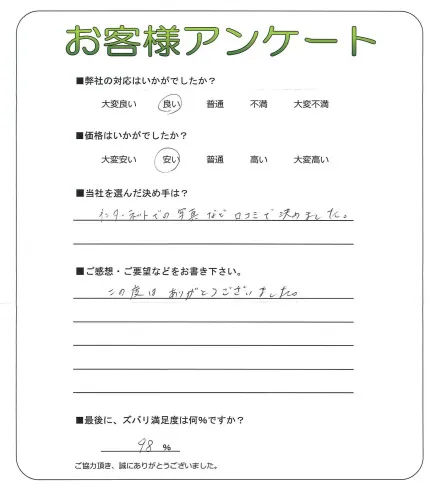 お客様アンケート
■弊社の対応はいかがでしたか?
大変良い 良い 普通 不満 大変不満
■価格はいかがでしたか?
大変安い 安い 普通 高い 大変高い
■当社を選んだ決め手は?
インターネットでの写真など口コミで決めました。
■ご感想・ご要望などをお書き下さい。
この度はありがとうございました。
■最後に、ズバリ満足度は何%ですか?
98 %
ご協力頂き、誠にありがとうございました。